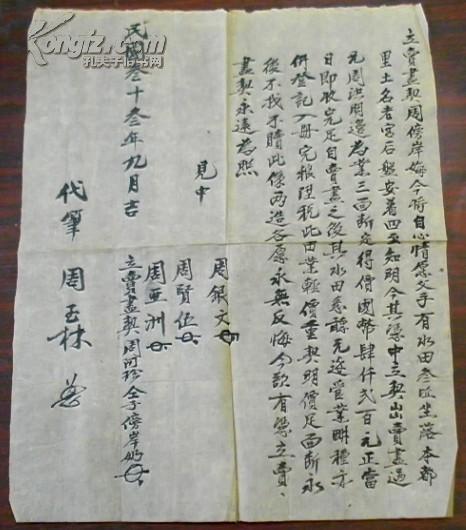 立賣盡契周傍岸妳今將自心情愿父手有水田叁坵坐落本都
里土名老宮后盤安着四至知明今其憑中立契出賣盡過
元周洪明邊為業三面断定得價國幣肆仟弍百元正當
日即收完足自賣盡之後其水田系聽元邊管業畊種亦
併登記入冊完粮理税此田業輕價重契明價足面断永
後不找不贖此係两造各愿永無反悔今欲有憑立賣
盡契永遠為照
見中
周銀文
周賢伍
周亚洲
立賣盡契周阿珍仝子傍岸妳
民國叁十叁年九月吉
代筆 周玉林
Kongfz.com
孔夫子旧书网